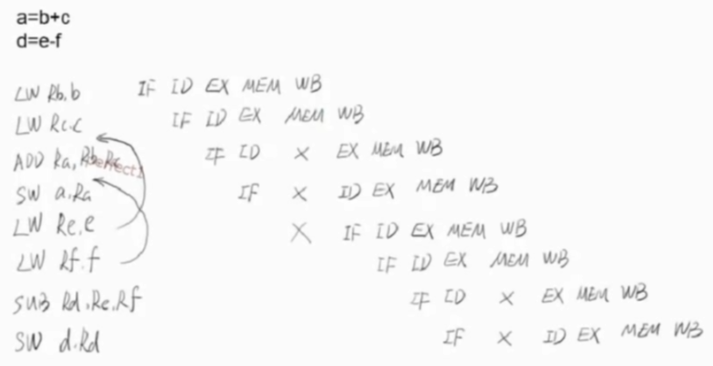 a=b+c
d=e-f
LW Rb.b IF ID EX MEM WB
LW Rc.c IF ID EX MEM WB
ADD Ra, Rb, Rc IF ID X EX MEM WB
SW a.Ra IF X ID EX MEM WB
LW Re.e X IF ID EX MEM WB
LW Rf.f IF ID EX MEM WB
SUB Rd.Re.Rf IF ID X EX MEM WB
SW d.Rd IF X ID EX MEM WB